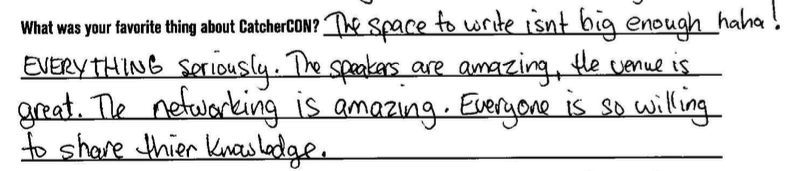 What was your favorite thing about CatcherCON? The space to write isnt big enough haha!
EVERYTHING seriously. The speakers are amazing, the venue is
great. The networking is amazing. Everyone is so willing
to share thier knowledge.